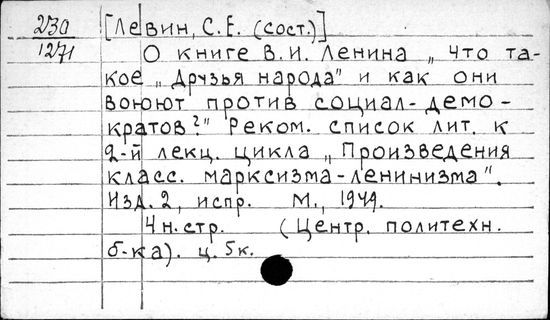 230
1271
[Левин, С.Е. (сост.)]
О книге В.И. Ленина „Что та-
кое „Друзья народа" и как они
воюют против социал-демо-
кратов?" Реком. список лит. к
2-й лекц. цикла „Произведения
класс. марксизма-ленинизма".
Изд. 2, испр. М., 1949.
4 н. стр. (Центр. политехн.
б-ка). ц. 5к.